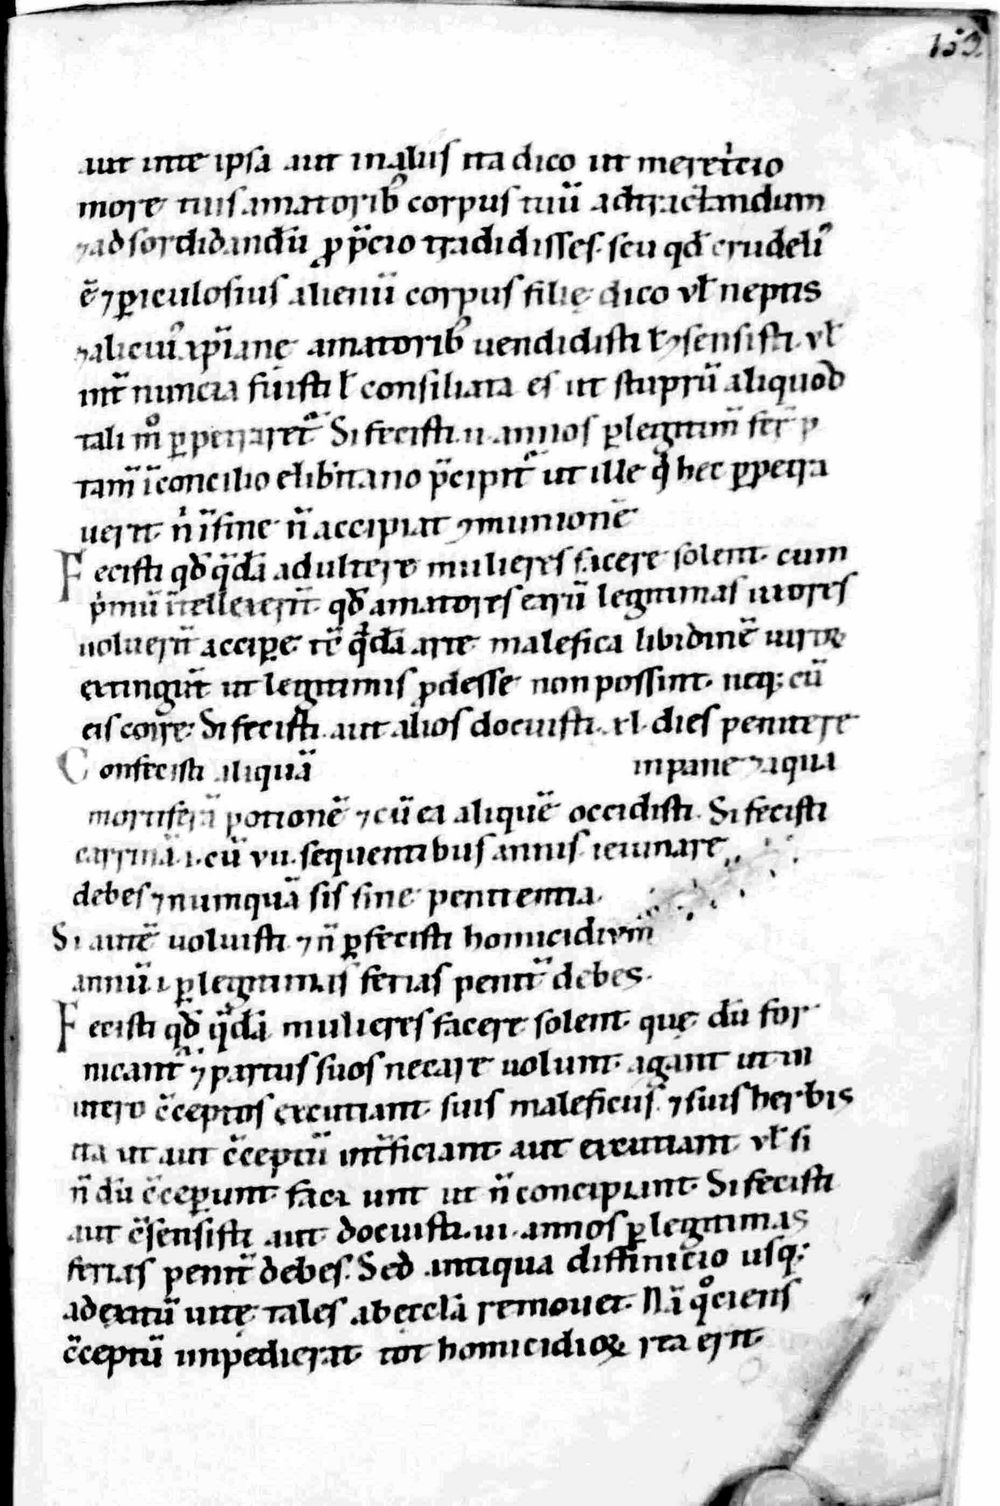 153.
aut inte ipsa aut in aliis ita dico ut meretricio
more tuis amatorib; corpus tuū ad tractandum
⁊ ad sordidandū ꝓ p̄cio tradidisses. seu qd̄ crudeli᷑
ē ⁊ ꝑiculosius alienū corpus filię dico vl̄ neptis
⁊ alicui᷒ xp̄iane amatorib; uendidisti l̄ ꝯsensisti. vl̄
int̄nuncia fuisti l̄ consiliata es ut stuprū aliquod
tali mͦ ꝑpetraret᷑ Si fecisti .ii. annos ꝑ legitim̄ fer̄ p
tam̄ ī concilio elibitano p̄cipit᷑ ut ille q̇ hec ꝑpetra
uerit. n̄ ī fine n̄ accipiat ꝯmunionē
Fecisti qd̄ q̄dā adultere mulieres facere solent. cum
ṗmū ītellexerīt. qd̄ amatores earū legitimas uxores
uoluerīt acciꝑe. tc̄ q̄dā arte malefica libidinē uiroꝝ
extingūt ut legitimis ꝓdesse non possint. neq; cū
eis coire. Si fecisti. aut alios docuisti. xl. dies penitere
Confecisti aliquā in pane ⁊ aqua
mortiferā potionē ⁊ cū ea aliquē occidisti. Si fecisti
carrinā .i. cū vii. sequentibus annis ieiunare
debes ⁊ numquā sis sine penitentia.
Si autē uoluisti ⁊ n̄ ꝑfecisti homicidium̄
annū .i. ꝑ legitimas ferias penit̄ debes.
Fecisti qd̄ q̄dā mulieres facere solent. quę dū for
nicant᷑ ⁊ partus suos necare uolunt. agunt ut in
utero ↄ̄ceptos excutiant. suis maleficiis. ⁊ suis herbis
ita ut aut ↄ̄ceptū int̄ficiant. aut excutiant. vl̄ si
n̄ dū ↄ̄ceꝑunt. faciunt ut n̄ concipiant. Si fecisti
aut ↄ̄sensisti aut docuisti. iii. annos ꝑ legitimas
ferias penit̄ debes. Sed antiqua diffinicio usq;
ad exitū uitę tales ab eccl̄a remouet. Nā qͦciens
ↄ̄ceptū impedierat. tot homicidioꝝ rea erit.